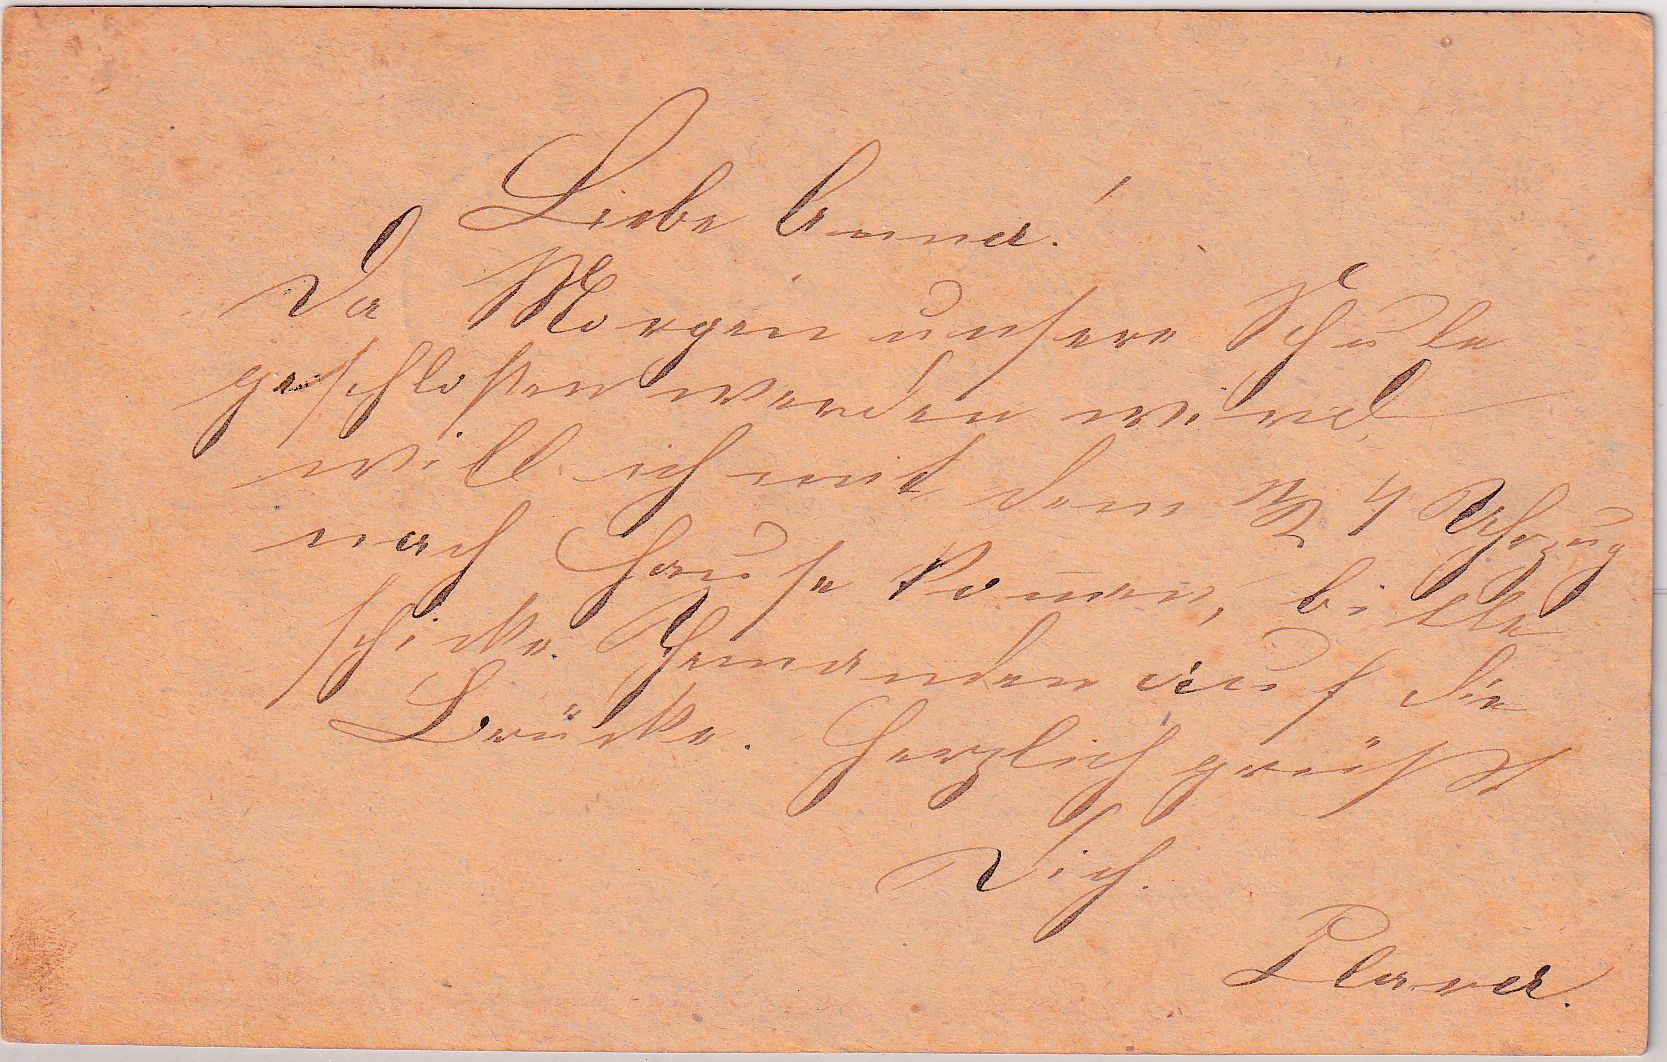 Liebe Anna!
Da Morgen unsere Schule
geschloßen werden wird,
will ich mit dem 1/2 4 Uhrzug
nach Hause komen, bitte
schicke Jemanden auf die
Brücke. Herzlich grüßt
Dich.
Clara.